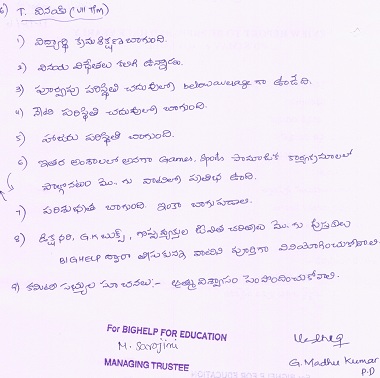 6) T. వినయ్ (VII Tm)
1) విద్యార్థి క్రమశిక్షణ బాగుంది.
2) వినయ విధేయతలు కలిగి ఉన్నాడు.
3) పూర్వపు పరిస్థితి చదువులో below average గా ఉండేది.
4) నేటి పరిస్థితి చదువులో బాగుంది.
5) హాజరు పరిస్థితి బాగుంది.
6) ఇతర అంశాలలో అనగా Games, Spots సామాజిక కార్యక్రమాలలో
పాల్గొనటం మొ. గు వాటిలో ప్రతిభ ఉంది.
7) పరిశుభ్రత బాగుంది. ఇంకా బాగుపడాలి.
8) డిక్షనరి, G.K బుక్స్, గొప్ప వ్యక్తుల జీవిత చరిత్రలు మొ. గు పుస్తకాలు
BIGHELP ద్వారా తీసుకున్న వాటిని పూర్తిగా వినియోగించుకోవాలి.
9) కమిటి సభ్యుల సూచనలు:- ఆత్మ విశ్వాసం పెంపొందించుకోవాలి.
For BIGHELP FOR EDUCATION
M. Sarojini
MANAGING TRUSTEE
G. Madhu Kumar
P.D